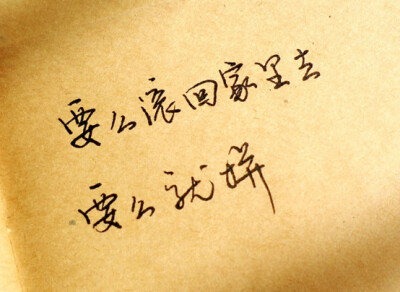 要么滚回家里去
要么就拼